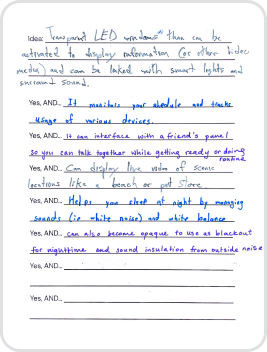 Idea: Transparent LED windows that can be
activated to display information (or other video
media) and can be linked with smart lights and
surround sound.
Yes, AND... It monitors your schedule and tracks
usage of various devices.
Yes, AND... It can interface with a friend's panel
so you can talk together while getting ready or doing
routine
Yes, AND... Can display live video of scenic
locations like a beach or pet store
Yes, AND... Helps you sleep at night by managing
sounds (ie white noise) and white balance
Yes, AND... can also become opaque to use as blackout
for nighttime and sound insulation from outside noise
Yes, AND...
Yes, AND...